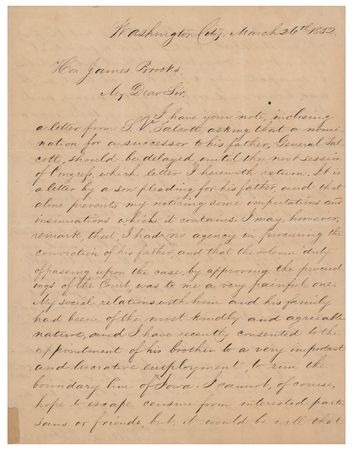 Washington City, March 26th 1852.
Hon James Brooks
My Dear Sir,
I have your note, inclosing
a letter from S. V. Talcott asking that a nomi-
nation for a successor to his father, General Tal
cott, should be delayed until the next session
of Congress, which letter I herewith return. It is
a letter by a son pleading for his father, and that
alone prevents my noticing some imputations and
insinuations which it contains. I may, however,
remark, that I had no agency in procuring the
conviction of his father, and that the solemn duty
of passing upon the case, by approving the proceed-
ings of the Court was to me a very painful one.
My social relations with him and his family
had been of the most kindly and agreeable
nature, and I have recently consented to the
appointment of his brother to a very important
and lucrative employment, to run the
boundary line of Iowa. I cannot, of course,
hope to escape censure from interested parti
sans or friends, but, it would be well that